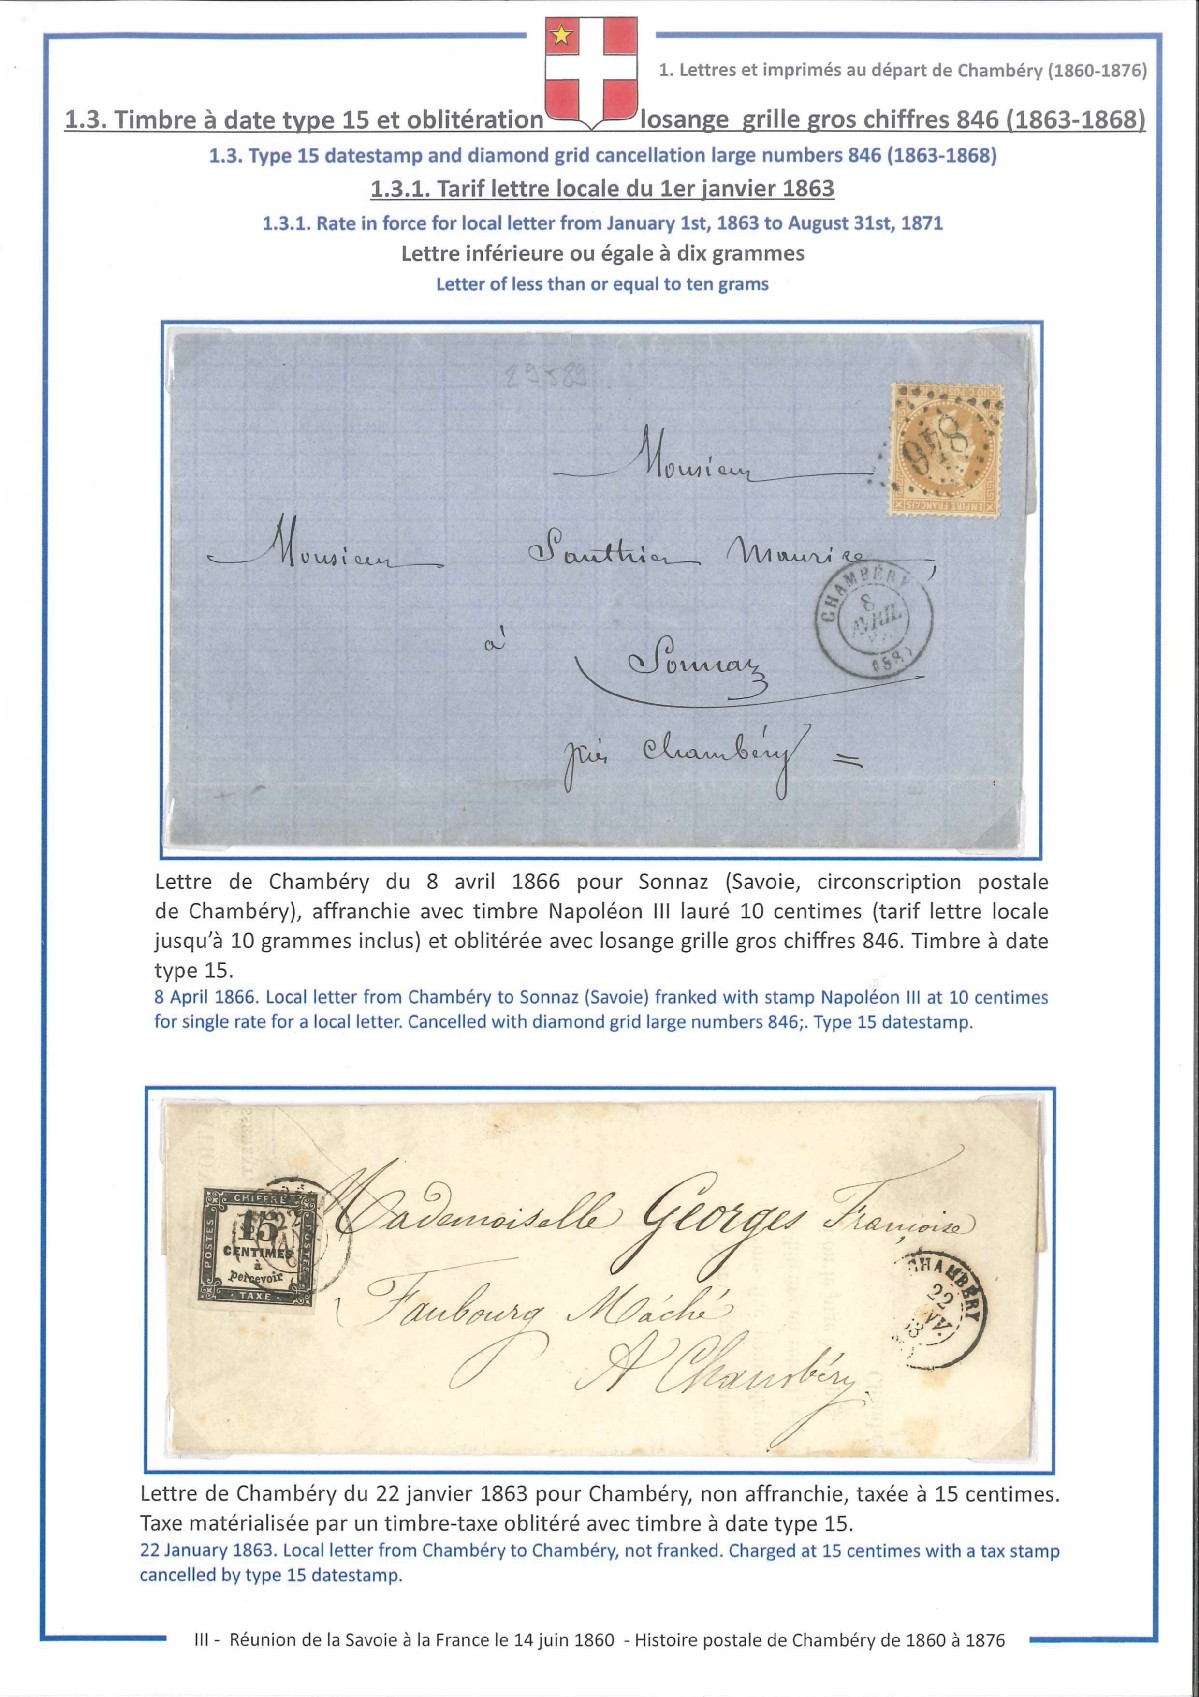 1. Lettres et imprimés au départ de Chambéry (1860-1876)
1.3. Timbre à date type 15 et oblitération losange grille gros chiffres 846 (1863-1868)
1.3. Type 15 datestamp and diamond grid cancellation large numbers 846 (1863-1868)
1.3.1. Tarif lettre locale du 1er janvier 1863
1.3.1. Rate in force for local letter from January 1st, 1863 to August 31st, 1871
Lettre inférieure ou égale à dix grammes
Letter of less than or equal to ten grams
846
EMPIRE FRANÇAIS
Monsieur
Monsieur Gauthier Maurice,
CHAMBÉRY
8
AVRIL
à Sonnaz
près Chambéry
Lettre de Chambéry du 8 avril 1866 pour Sonnaz (Savoie, circonscription postale
de Chambéry), affranchie avec timbre Napoléon III lauré 10 centimes (tarif lettre locale
jusqu'à 10 grammes inclus) et oblitérée avec losange grille gros chiffres 846. Timbre à date
type 15.
8 April 1866. Local letter from Chambéry to Sonnaz (Savoie) franked with stamp Napoléon III at 10 centimes
for single rate for a local letter. Cancelled with diamond grid large numbers 846;. Type 15 datestamp.
CHIFFRE
POSTES
15
CENTIMES
à
percevoir
TAXE
POSTES
Mademoiselle Georges Françoise
Faubourg Mâché
A Chambéry
CHAMBÉRY
22
Lettre de Chambéry du 22 janvier 1863 pour Chambéry, non affranchie, taxée à 15 centimes.
Taxe matérialisée par un timbre-taxe oblitéré avec timbre à date type 15.
22 January 1863. Local letter from Chambéry to Chambéry, not franked. Charged at 15 centimes with a tax stamp
cancelled by type 15 datestamp.
III - Réunion de la Savoie à la France le 14 juin 1860 - Histoire postale de Chambéry de 1860 à 1876